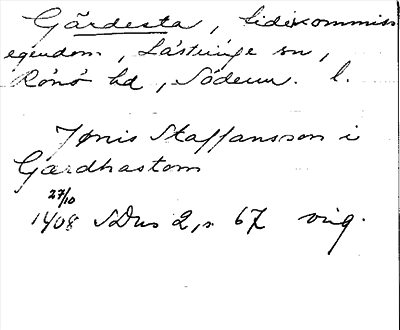 Gärdesta, fideikommiss
egendom, Lästringe sn,
Rönö hd, Söderm. l.
Jønis Staffansson i
Gærdhastom
27/10
1408 SDns 2, s 67 orig.